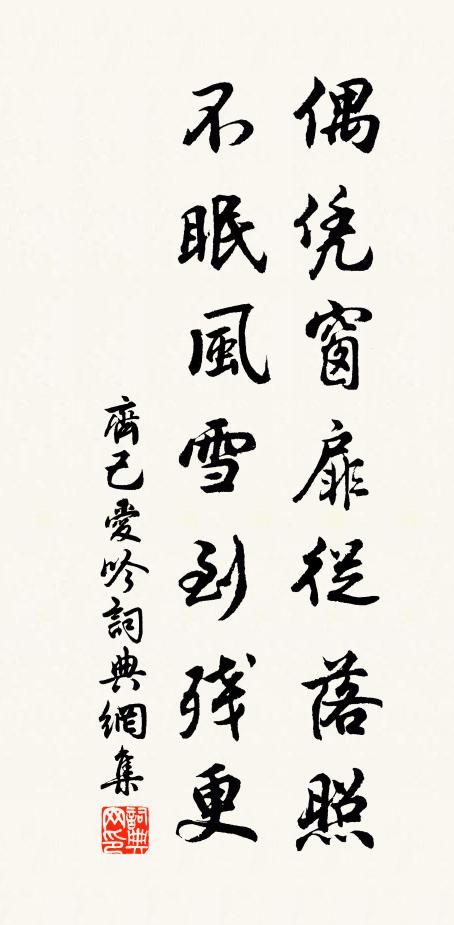 偶凭窗扉從落照
不眠風雪到残更
齊己愛吟詞典網集
詞典网印